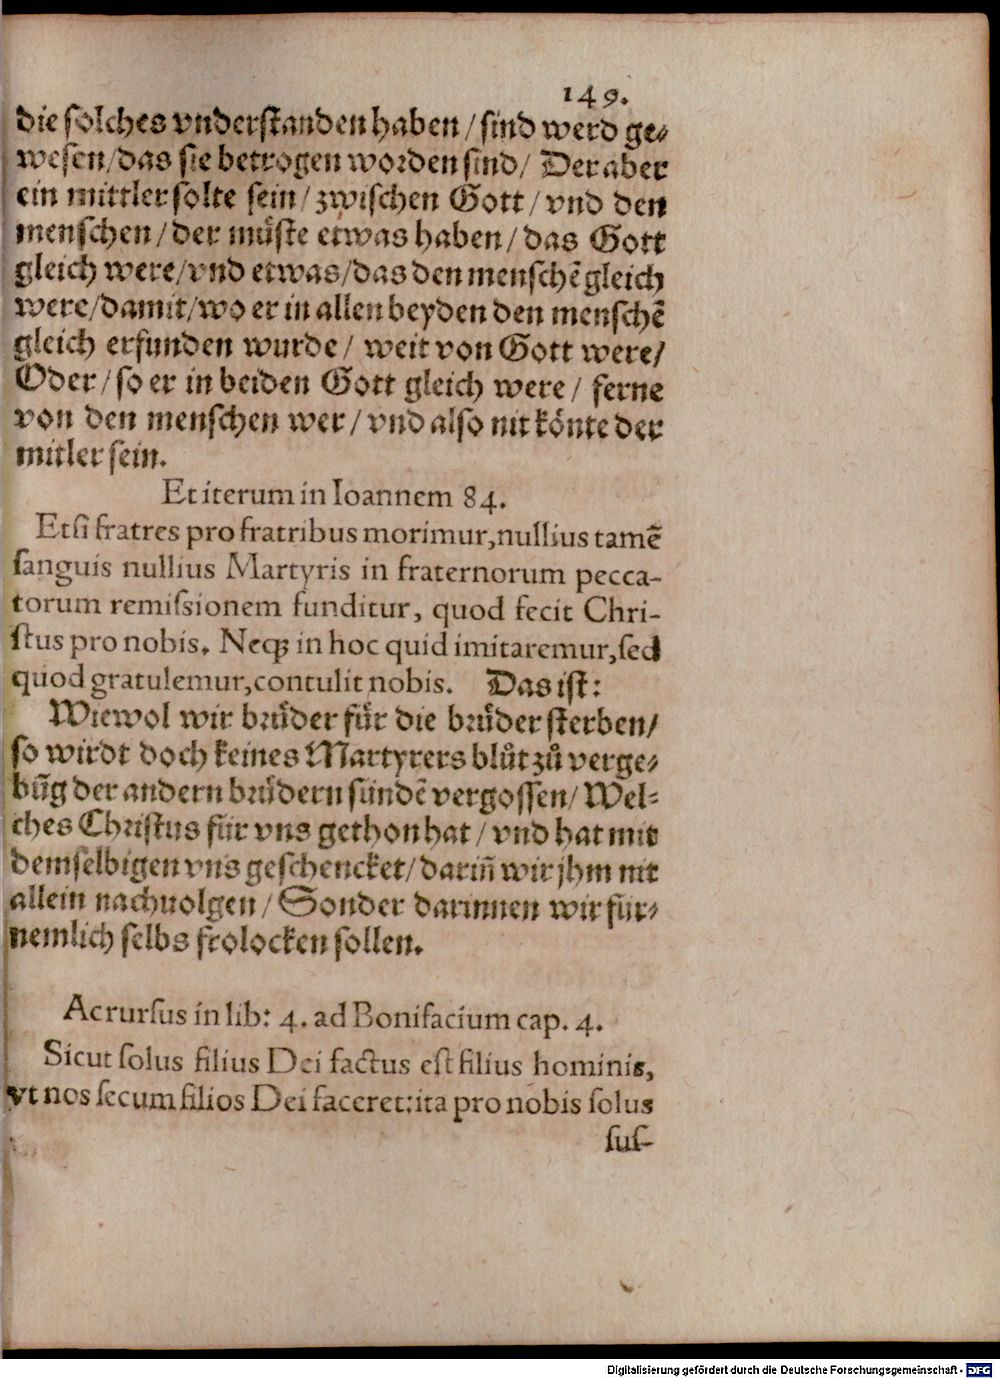 149.
die solches vnderstanden haben / sind werd ge⸗
wesen/das sie betrogen worden sind/ Der aber
ein mittler solte sein / zwischen Gott / vnd den
menschen / der muͤste etwas haben / das Gott
gleich were/vnd etwas/das den menschē gleich
were/damit/wo er in allen beyden den menschē
gleich erfunden wurde / weit von Gott were/
Oder / so er in beiden Gott gleich were / ferne
von den menschen wer / vnd also nit koͤnte der
mitler sein.
Et iterum in Ioannem 84.
Etsi fratres pro fratribus morimur, nullius tamē
sanguis nullius Martyris in fraternorum pecca-
torum remissionem funditur, quod fecit Chri-
stus pro nobis. Neqꝫ in hoc quid imitaremur, sed
quod gratulemur, contulit nobis. Das ist:
Wiewol wir bruͤder fuͤr die bruͤder sterben/
so wirdt doch keines Martyrers bluͦt zuͦ verge⸗
būg der andern bruͤdern sündē vergossen/ Wel⸗
ches Christus für vns gethon hat / vnd hat mit
demselbigen vns geschencket/ darin̄ wir jhm nit
allein nachuolgen / Sonder darinnen wir für⸗
nemlich selbs frolocken sollen.
Ac rursus in lib: 4. ad Bonifacium cap. 4.
Sicut solus filius Dei factus est filius hominis,
vt nos secum filios Dei faceret: ita pro nobis solus
sus-
Digitalisierung gefördert durch die Deutsche Forschungsgemeinschaft - DFG